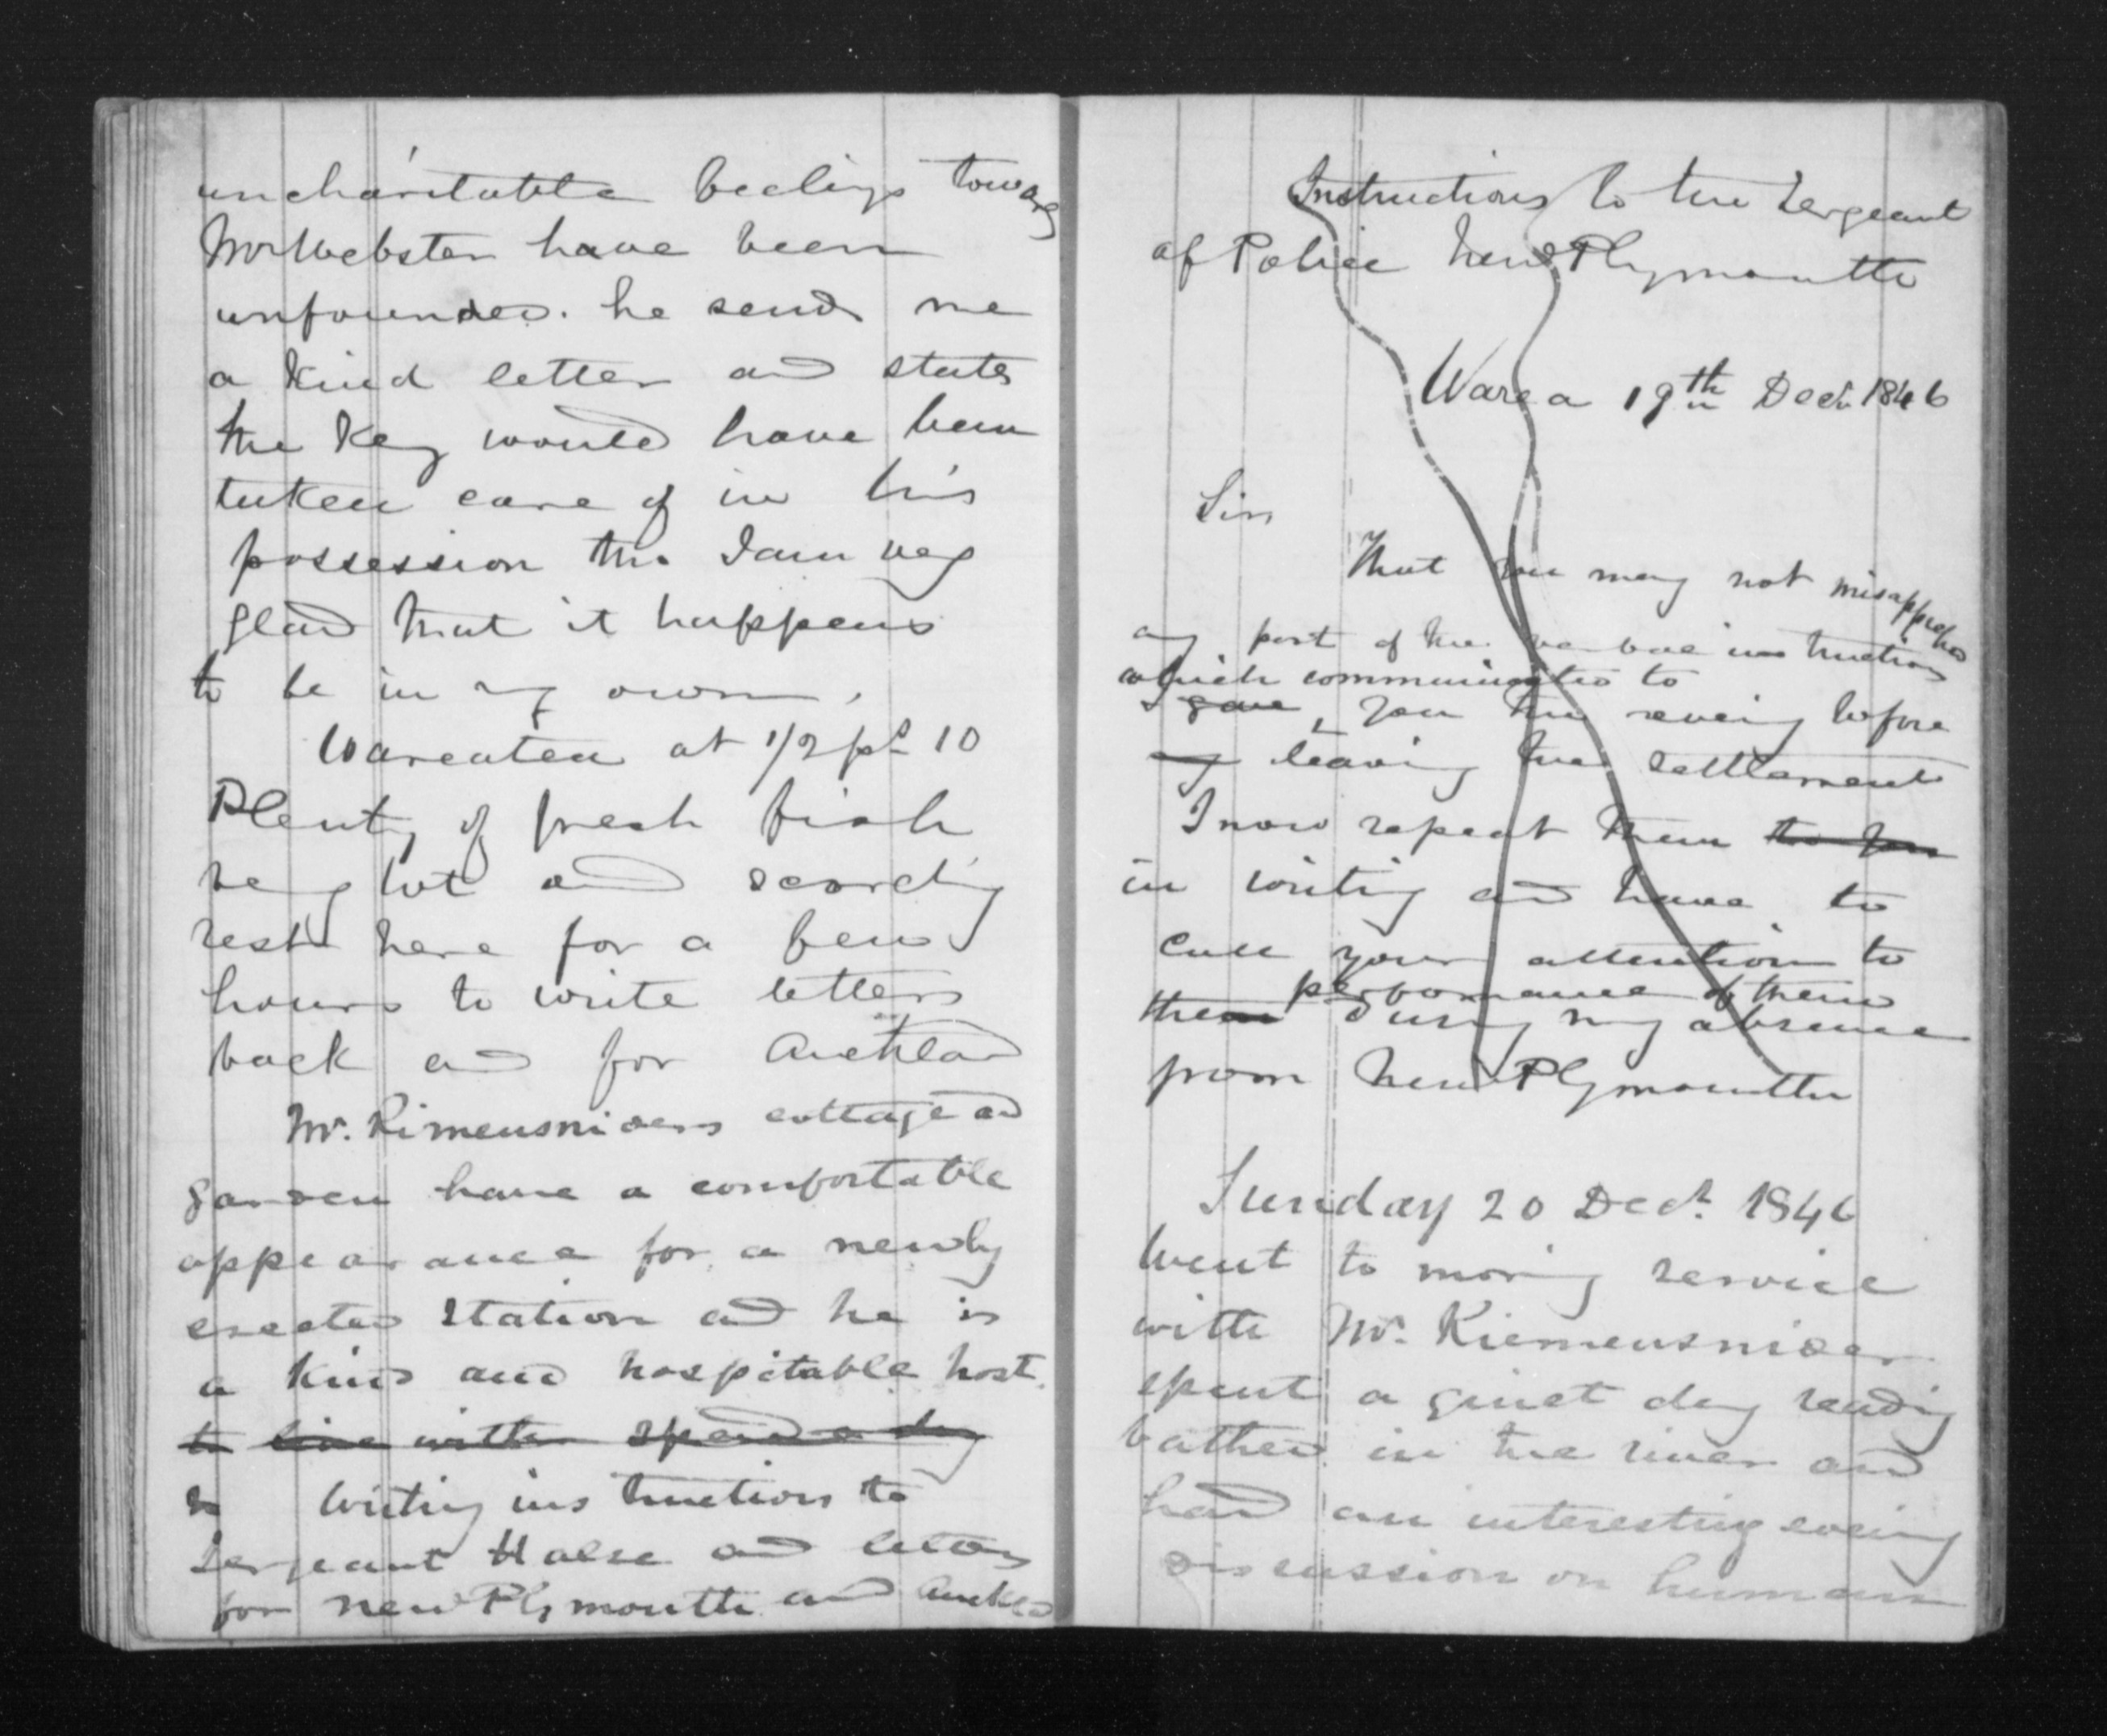 uncharitable feelings towards
Mr Webster have been
unfounded. he sends me
a kind letter and states
the key would have been
taken care of in his
possession tho I am very
glad that it happens
to be in my own.
Wareatea at 1/2 pt 10
Plenty of fresh fish
very hot and scorching
rest here for a few
hours to write letters
back and for Auckland
Mr. Rimensniders cottage and
garden have a comfortable
appearance for a newly
erected station and he is
a kind and hospitable host.
to live with spend a day
Writing instructions to
Sergeant Halse and letters
for new Plymouth and Auckld
Instructions to the Sergeant
of Police New Plymouth
Warea 19th Decr 1846
Sir
That you may not misapprehend
any part of the verbal instructions
which communicated to
I gave you the evening before
my leaving the settlement
I now repeat them to you
in writing and have to
call your attention to
performance of them
them during my absence
from New Plymouth
Sunday 20 Decr. 1846
Went to morning service
with Mr. Riemensnider
spent a quiet day reading
bathed in the river and
had an interesting evening
discussion on human